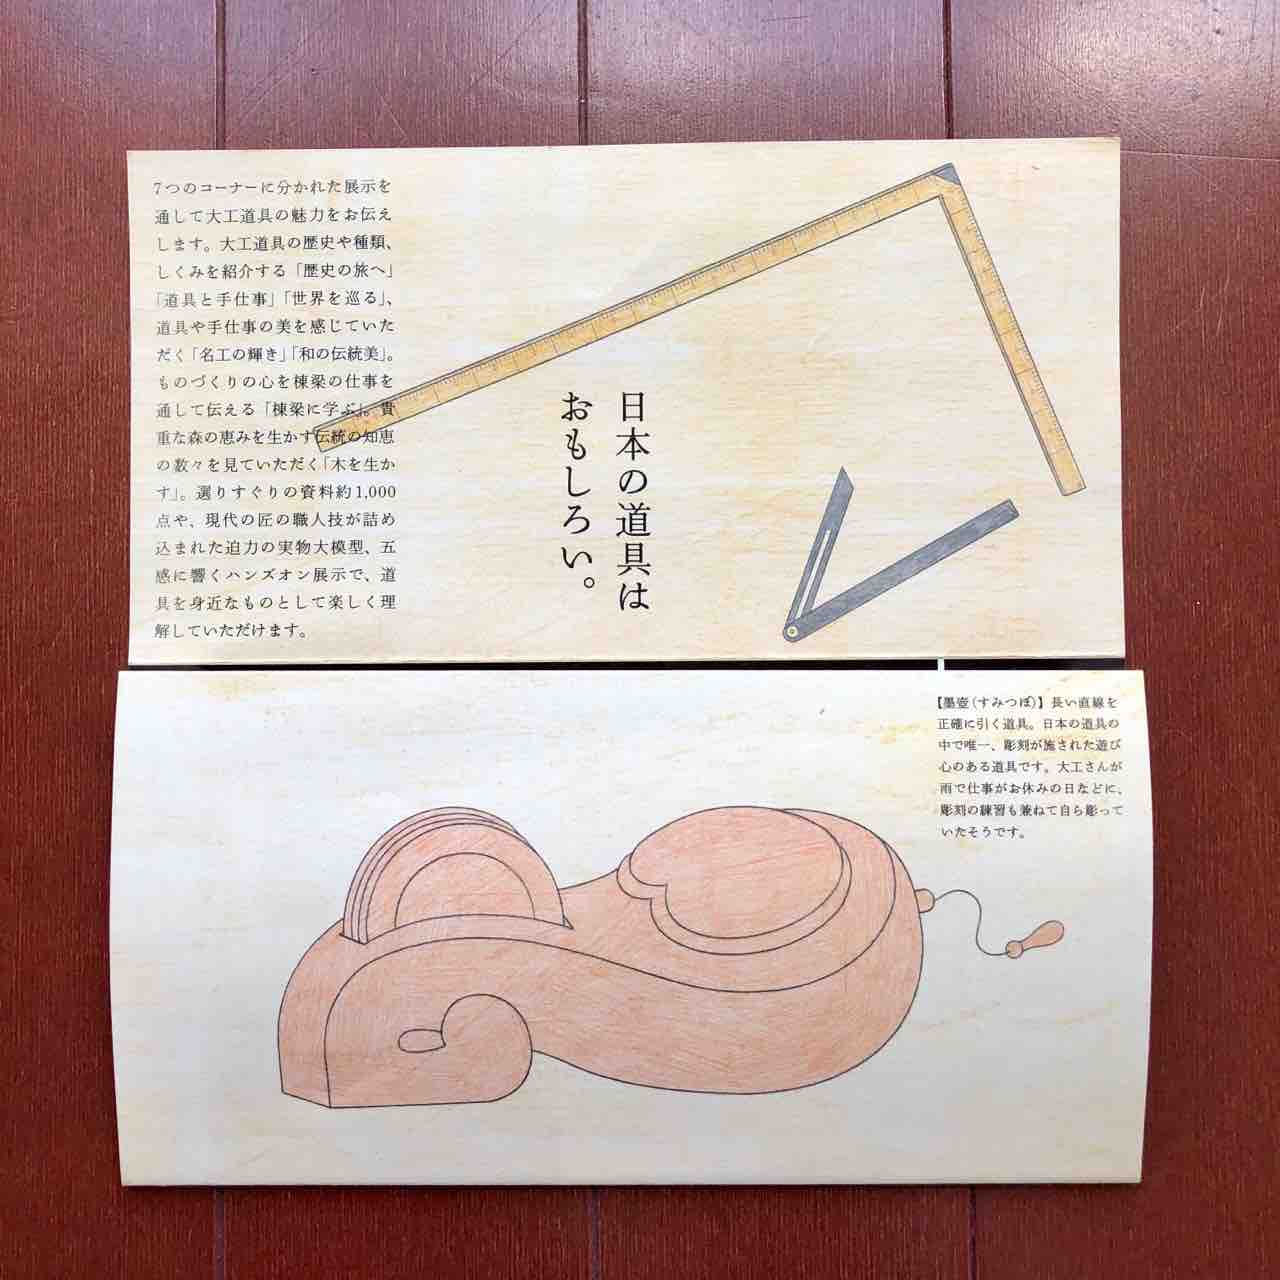 7つのコーナーに分かれた展示を
通して大工道具の魅力をお伝え
します。大工道具の歴史や種類、
しくみを紹介する「歴史の旅へ」
「道具と手仕事」「世界を巡る」、
道具や手仕事の美を感じていた
だく「名工の輝き」「和の伝統美」。
ものづくりの心を棟梁の仕事を
通して伝える「棟梁に学ぶ」。貴
重な森の恵みを生かす伝統の知恵
の数々を見ていただく「木を生か
す」。選りすぐりの資料約1,000
点や、現代の匠の職人技が詰め
込まれた迫力の実物大模型、五
感に響くハンズオン展示で、道
具を身近なものとして楽しく理
解していただけます。
日本の道具は
おもしろい。
【墨壺(すみつぼ)】長い直線を
正確に引く道具。日本の道具の
中で唯一、彫刻が施された遊び
心のある道具です。大工さんが
雨で仕事がお休みの日などに、
彫刻の練習も兼ねて自ら彫って
いたそうです。